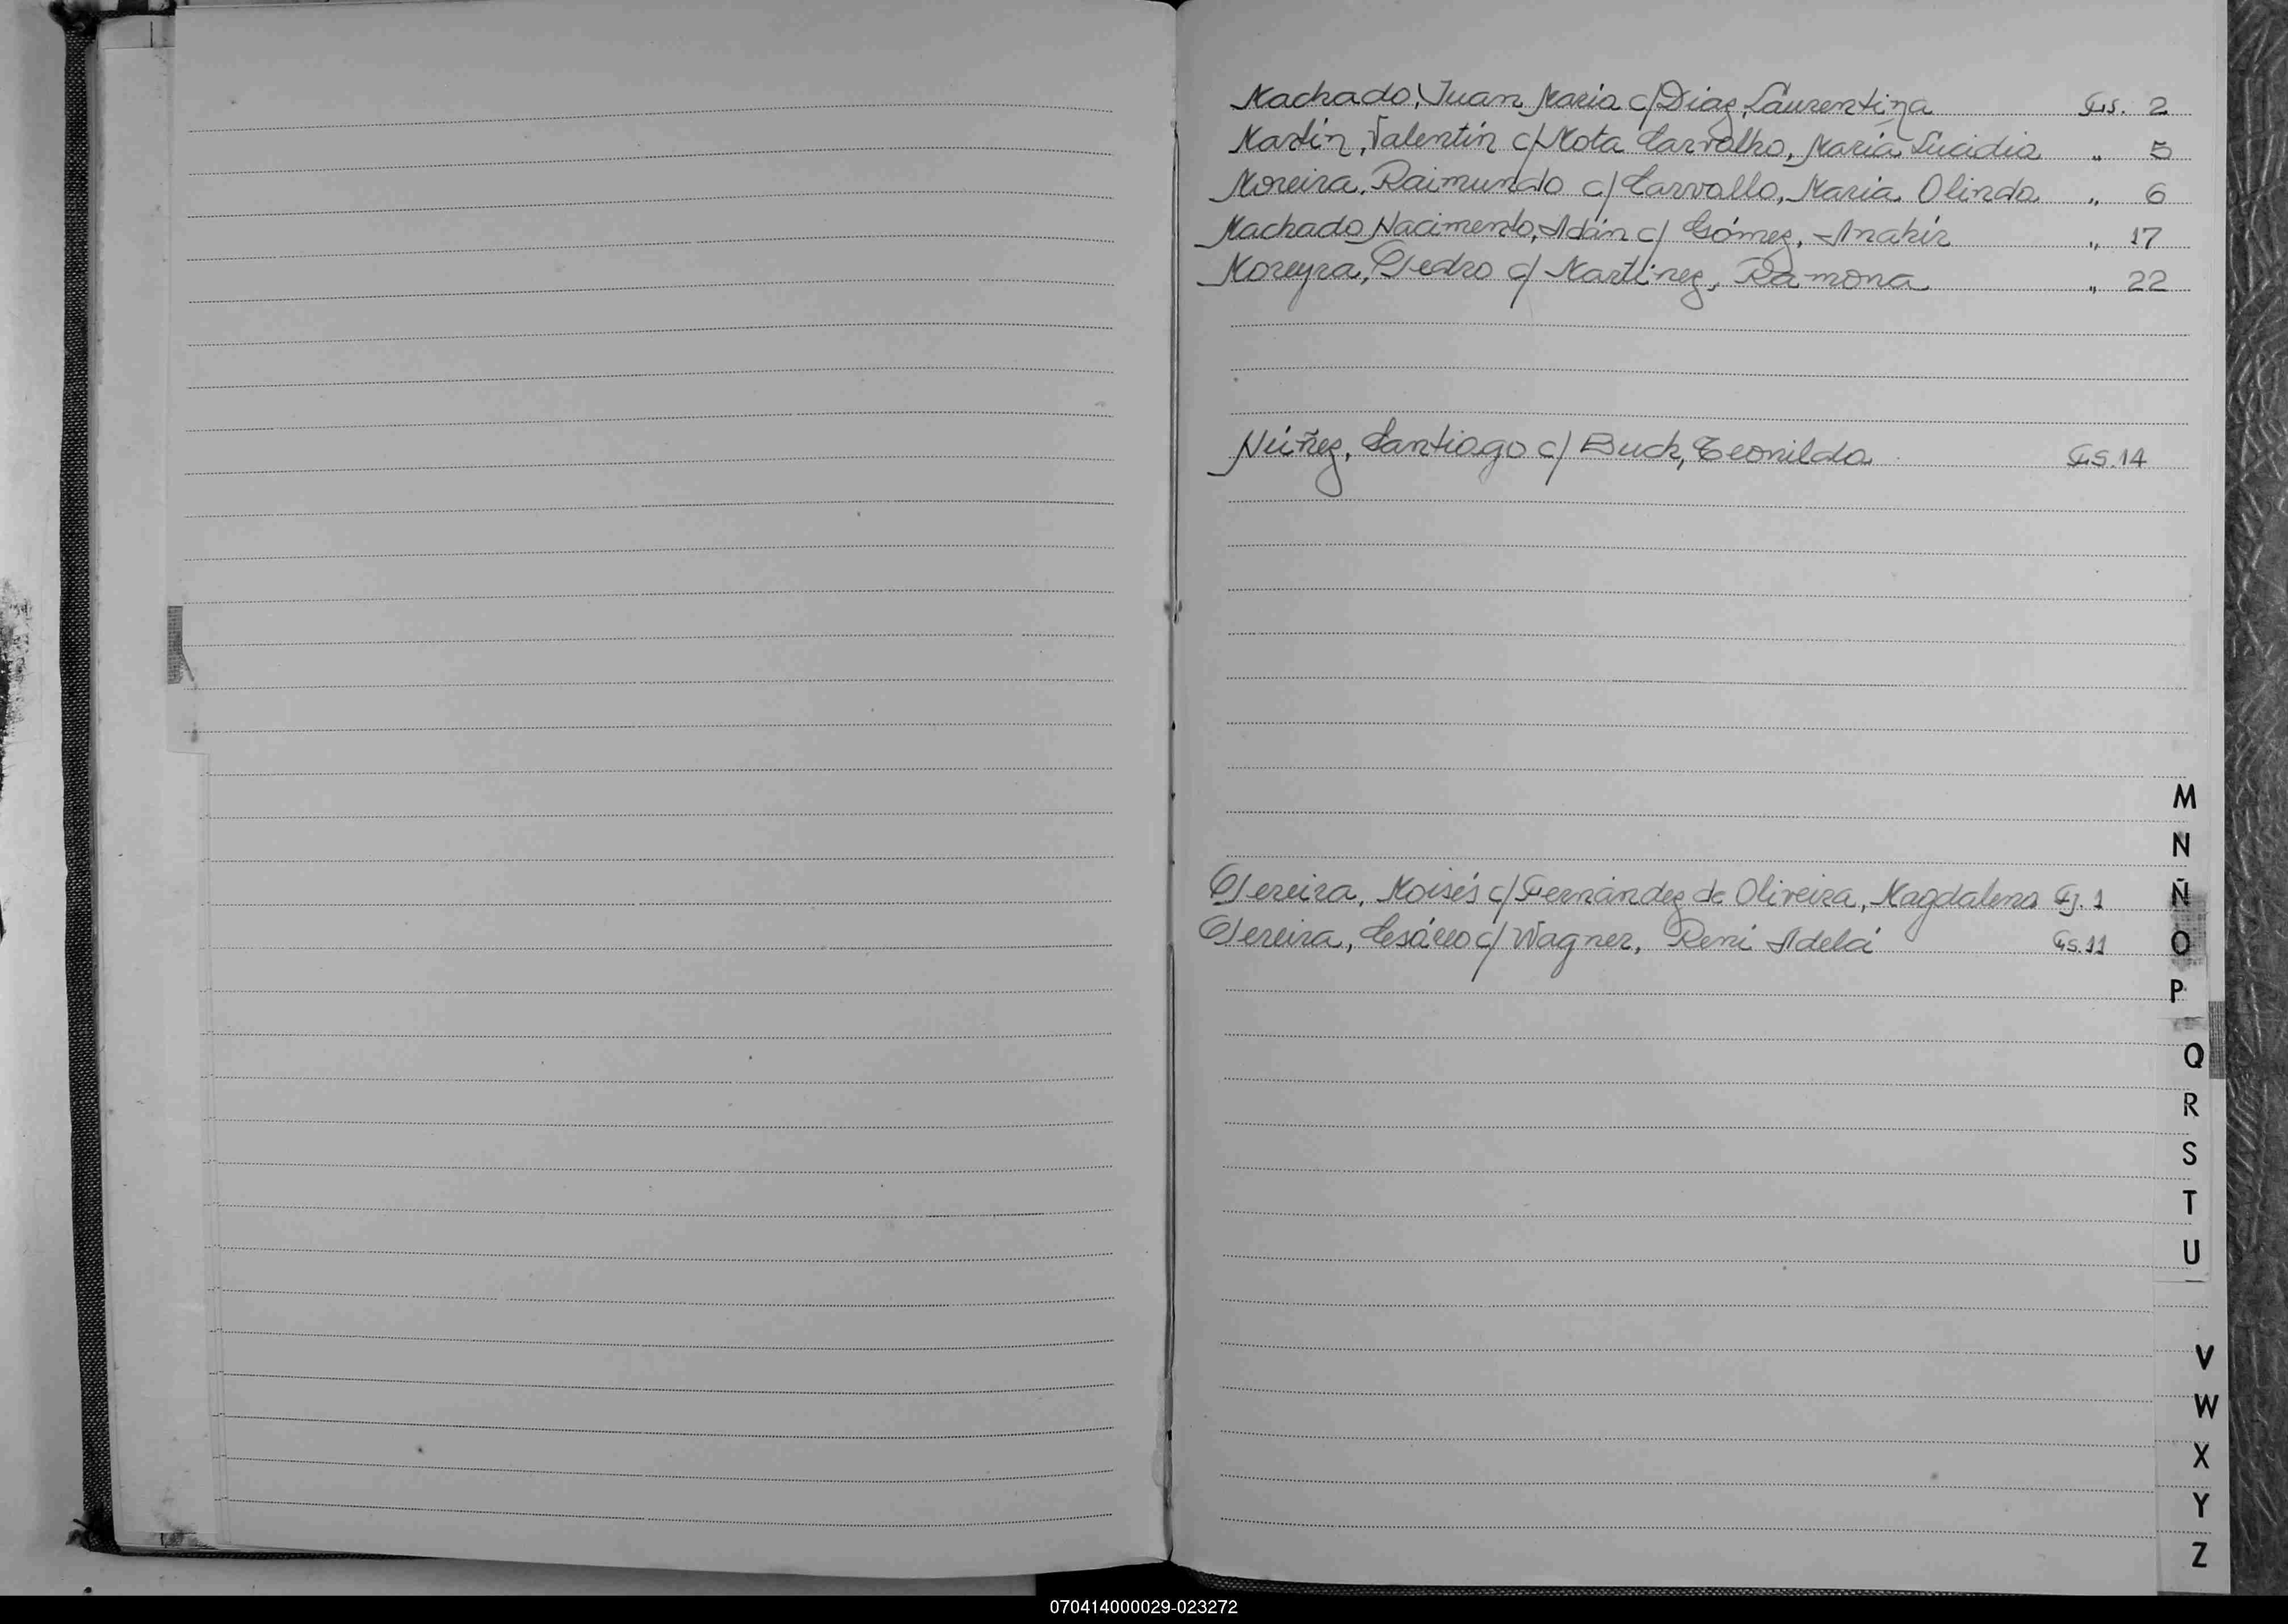 Machado, Juan Maria c/ Diaz, Laurentina Fs. 2
Martín, Valentín c/ Mota Carvalho, María Lucidia " 5
Moreira, Raimundo c/ Carvallo, Maria Olinda " 6
Machado Nacimento, Adán c/ Gómez, Anahir " 17
Moreyra, Pedro c/ Martínez, Ramona " 22
Núñez, Santiago c/ Buch, Leonilda Fs. 14
Pereira, Moisés c/ Fernández de Oliveira, Magdalena Fj. 1
Pereira, c/ Wagner, Reni Fs. 11
M
N
Ñ
O
P
Q
R
S
T
U
V
W
X
Y
Z
070414000029-023272